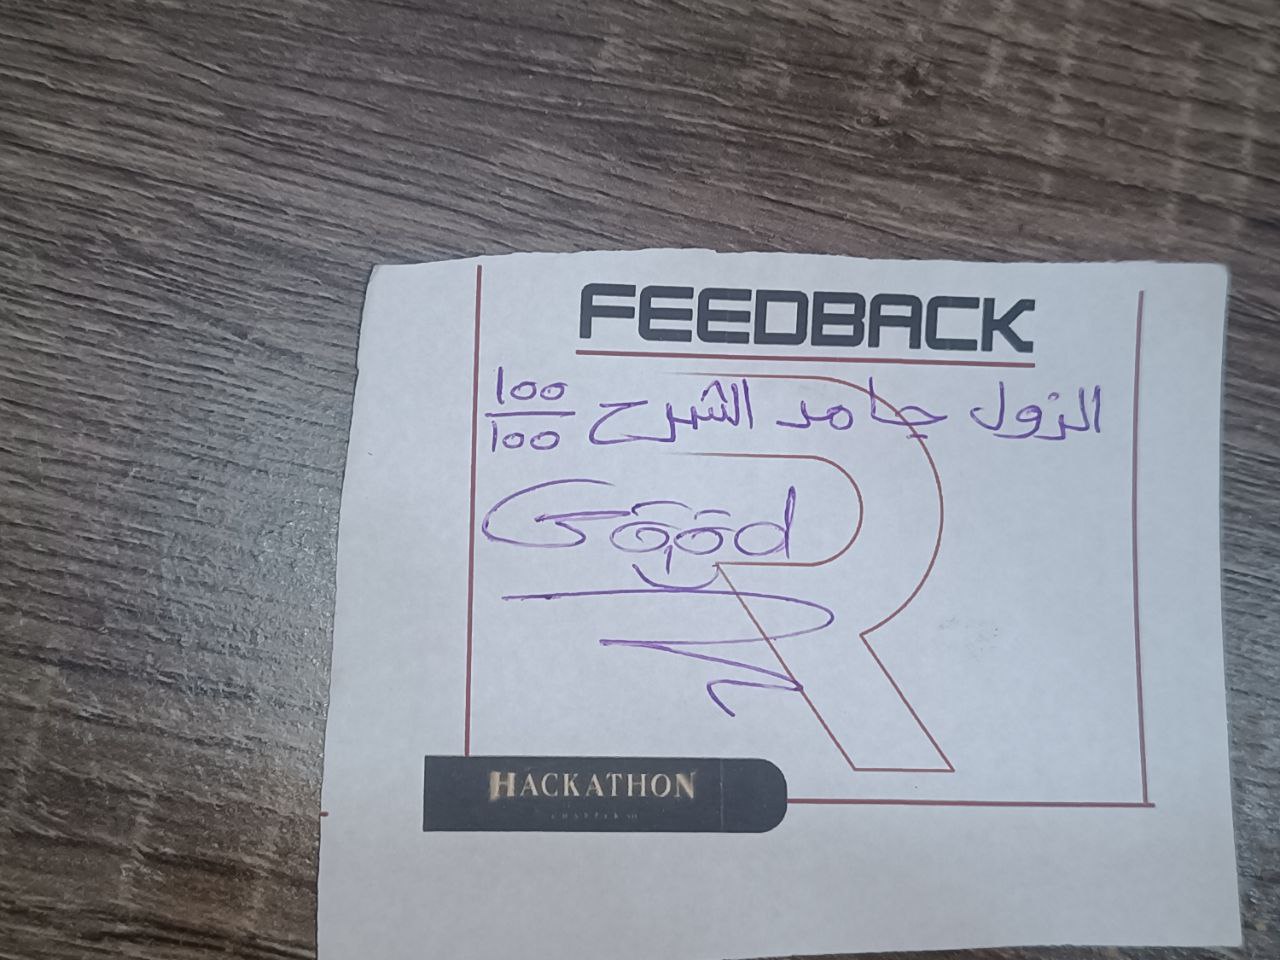 FEEDBACK
الزول جامد الشرح 100/100
Good
HACKATHON